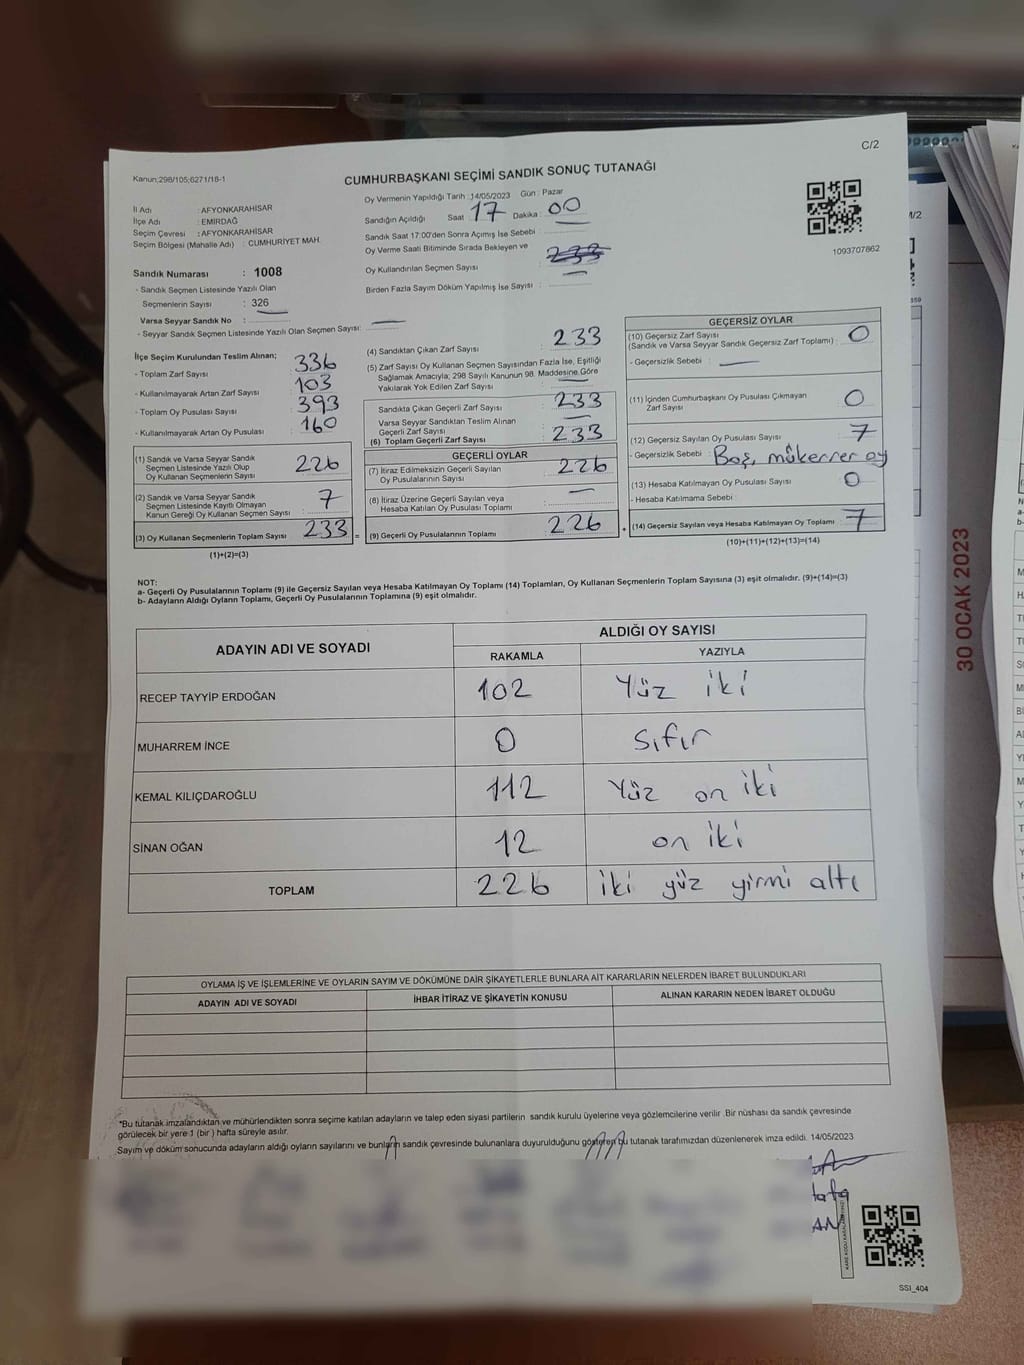 C/2
Kanun;298/105;6271/18-1
CUMHURBAŞKANI SEÇİMİ SANDIK SONUÇ TUTANAĞI
İl Adı : AFYONKARAHİSAR
İlçe Adı : EMİRDAĞ
Seçim Çevresi : AFYONKARAHİSAR
Seçim Bölgesi (Mahalle Adı) : CUMHURİYET MAH.
Oy Vermenin Yapıldığı Tarih :14/05/2023 Gün : Pazar
Sandığın Açıldığı Saat 17 Dakika : 00
Sandık Saat 17:00'den Sonra Açımış İse Sebebi :
Oy Verme Saati Bitiminde Sırada Bekleyen ve
Oy Kullandırılan Seçmen Sayısı : 233
Birden Fazla Sayım Döküm Yapılmış İse Sayısı :
1093707862
Sandık Numarası : 1008
- Sandık Seçmen Listesinde Yazılı Olan
Seçmenlerin Sayısı : 326
Varsa Seyyar Sandık No :
- Seyyar Sandık Seçmen Listesinde Yazılı Olan Seçmen Sayısı:
İlçe Seçim Kurulundan Teslim Alınan;
- Toplam Zarf Sayısı : 336
- Kullanılmayarak Artan Zarf Sayısı : 103
- Toplam Oy Pusulası Sayısı : 393
- Kullanılmayarak Artan Oy Pusulası : 160
(1) Sandık ve Varsa Seyyar Sandık
Seçmen Listesinde Yazılı Olup
Oy Kullanan Seçmenlerin Sayısı : 226
(2) Sandık ve Varsa Seyyar Sandık
Seçmen Listesinde Kayıtlı Olmayan
Kanun Gereği Oy Kullanan Seçmen Sayısı : 7
(3) Oy Kullanan Seçmenlerin Toplam Sayısı : 233 =
(1)+(2)=(3)
(4) Sandıktan Çıkan Zarf Sayısı : 233
(5) Zarf Sayısı Oy Kullanan Seçmen Sayısından Fazla İse, Eşitliği
Sağlamak Amacıyla; 298 Sayılı Kanunun 98. Maddesine Göre
Yakılarak Yok Edilen Zarf Sayısı :
Sandıkta Çıkan Geçerli Zarf Sayısı : 233
Varsa Seyyar Sandıktan Teslim Alınan
Geçerli Zarf Sayısı :
(6) Toplam Geçerli Zarf Sayısı : 233
GEÇERLİ OYLAR
(7) İtiraz Edilmeksizin Geçerli Sayılan
Oy Pusulalarının Sayısı : 226
(8) İtiraz Üzerine Geçerli Sayılan veya
Hesaba Katılan Oy Pusulası Toplamı :
(9) Geçerli Oy Pusulalarının Toplamı : 226 +
GEÇERSİZ OYLAR
(10) Geçersiz Zarf Sayısı
(Sandık ve Varsa Seyyar Sandık Geçersiz Zarf Toplamı) : 0
- Geçersizlik Sebebi :
(11) İçinden Cumhurbaşkanı Oy Pusulası Çıkmayan
Zarf Sayısı : 0
(12) Geçersiz Sayılan Oy Pusulası Sayısı : 7
- Geçersizlik Sebebi : Boş, mükerrer oy
(13) Hesaba Katılmayan Oy Pusulası Sayısı : 0
- Hesaba Katılmama Sebebi :
(14) Geçersiz Sayılan veya Hesaba Katılmayan Oy Toplamı : 7
(10)+(11)+(12)+(13)=(14)
NOT:
a- Geçerli Oy Pusulalarının Toplamı (9) ile Geçersiz Sayılan veya Hesaba Katılmayan Oy Toplamı (14) Toplamları, Oy Kullanan Seçmenlerin Toplam Sayısına (3) eşit olmalıdır. (9)+(14)=(3)
b- Adayların Aldığı Oyların Toplamı, Geçerli Oy Pusulalarının Toplamına (9) eşit olmalıdır.
ADAYIN ADI VE SOYADI ALDIĞI OY SAYISI
RAKAMLA YAZIYLA
RECEP TAYYİP ERDOĞAN 102 Yüz iki
MUHARREM İNCE 0 Sıfır
KEMAL KILIÇDAROĞLU 112 Yüz on iki
SİNAN OĞAN 12 on iki
TOPLAM 226 iki yüz yirmi altı
OYLAMA İŞ VE İŞLEMLERİNE VE OYLARIN SAYIM VE DÖKÜMÜNE DAİR ŞİKAYETLERLE BUNLARA AİT KARARLARIN NELERDEN İBARET BULUNDUKLARI
ADAYIN ADI VE SOYADI İHBAR İTİRAZ VE ŞİKAYETİN KONUSU ALINAN KARARIN NEDEN İBARET OLDUĞU
*Bu tutanak imzalandıktan ve mühürlendikten sonra seçime katılan adayların ve talep eden siyasi partilerin sandık kurulu üyelerine veya gözlemcilerine verilir .Bir nüshası da sandık çevresinde
görülecek bir yere 1 (bir ) hafta süreyle asılır.
Sayım ve döküm sonucunda adayların aldığı oyların sayılarını ve bunların sandık çevresinde bulunanlara duyurulduğunu gösteren bu tutanak tarafımızdan düzenlenerek imza edildi. 14/05/2023
SSİ_404
30 OCAK 2023